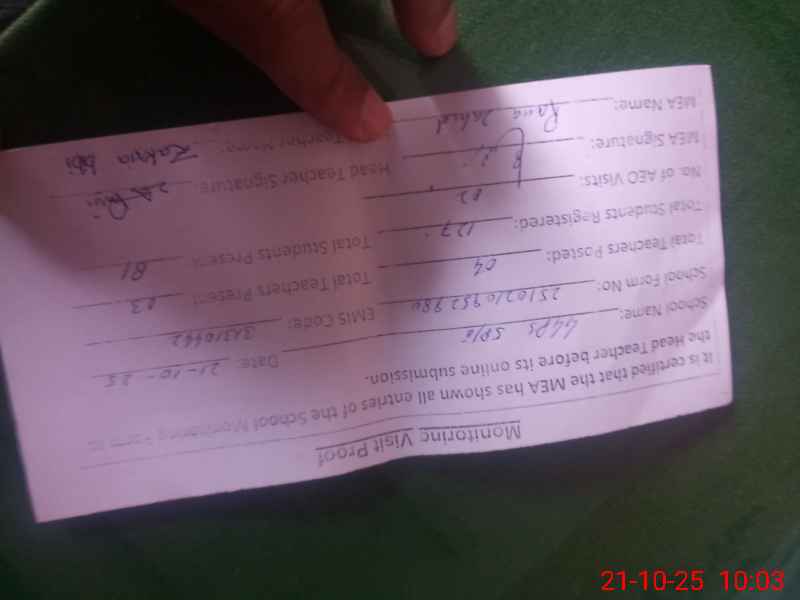 Monitoring Visit Proof
It is certified that the MEA has shown all entries of the School Monitoring Form to
the Head Teacher before its online submission.
School Name: GGPS 5P/G Date: 21-10-25
School Form No: 2510210952980 EMIS Code: 31310442
Total Teachers Posted: 04 Total Teachers Present 03
Total Students Registered: 127 Total Students Present 81
No. of AEO Visits: 02
MEA Signature: Head Teacher Signature:
MEA Name: Rana Zahid Teacher Name: Zakia bibi
21-10-25 10:03